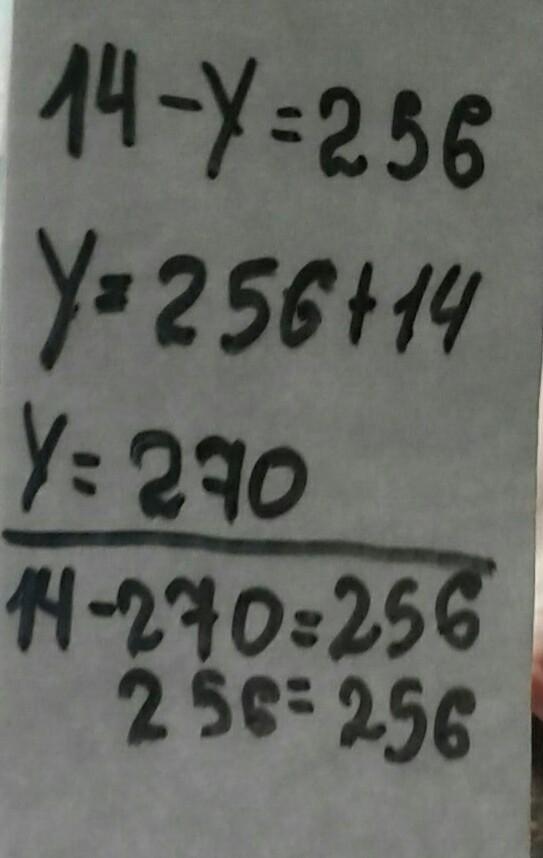 14-y=256
y=256+14
y=270
14-270=256
256=256